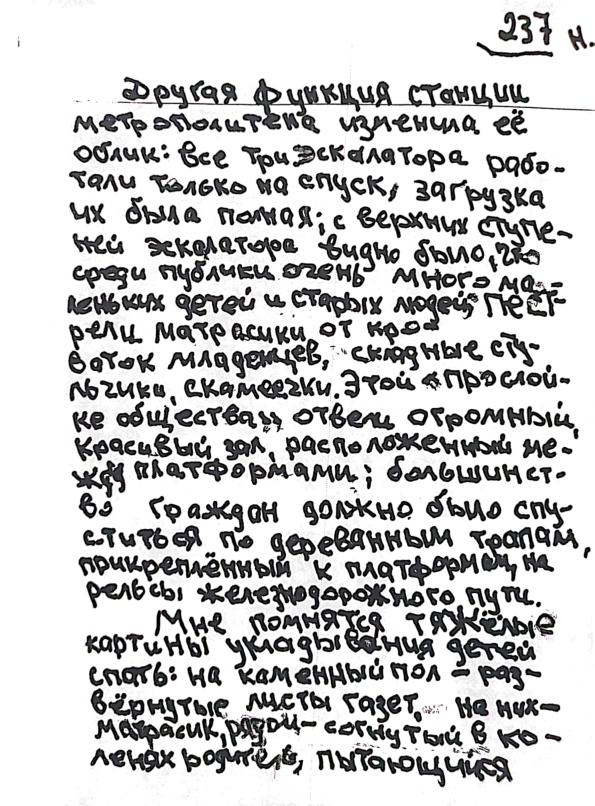 237 н.
Другая функция станции
метрополитена изменила её
облик: все три эскалатора рабо-
тали только на спуск, загрузка
их была полная; с верхних ступе-
ней эскалатора видно было, что
среди публики очень много ма-
леньких детей и старых людей, пест-
рели матрасики от кро-
ваток младенцев, складные сту-
льчики, скамеечки. Этой «прослой-
ке общества» отвели огромный,
красивый зал, расположенный ме-
жду платформами; большинст-
во граждан должно было спу-
ститься по деревянным трапам,
прикреплённым к платформам, на
рельсы железнодорожного пути.
Мне помнятся тяжёлые
картины укладывания детей
спать: на каменный пол – раз-
вёрнутые листы газет, на них –
матрасик, рядом – согнутый в ко-
ленях родитель, пытающийся